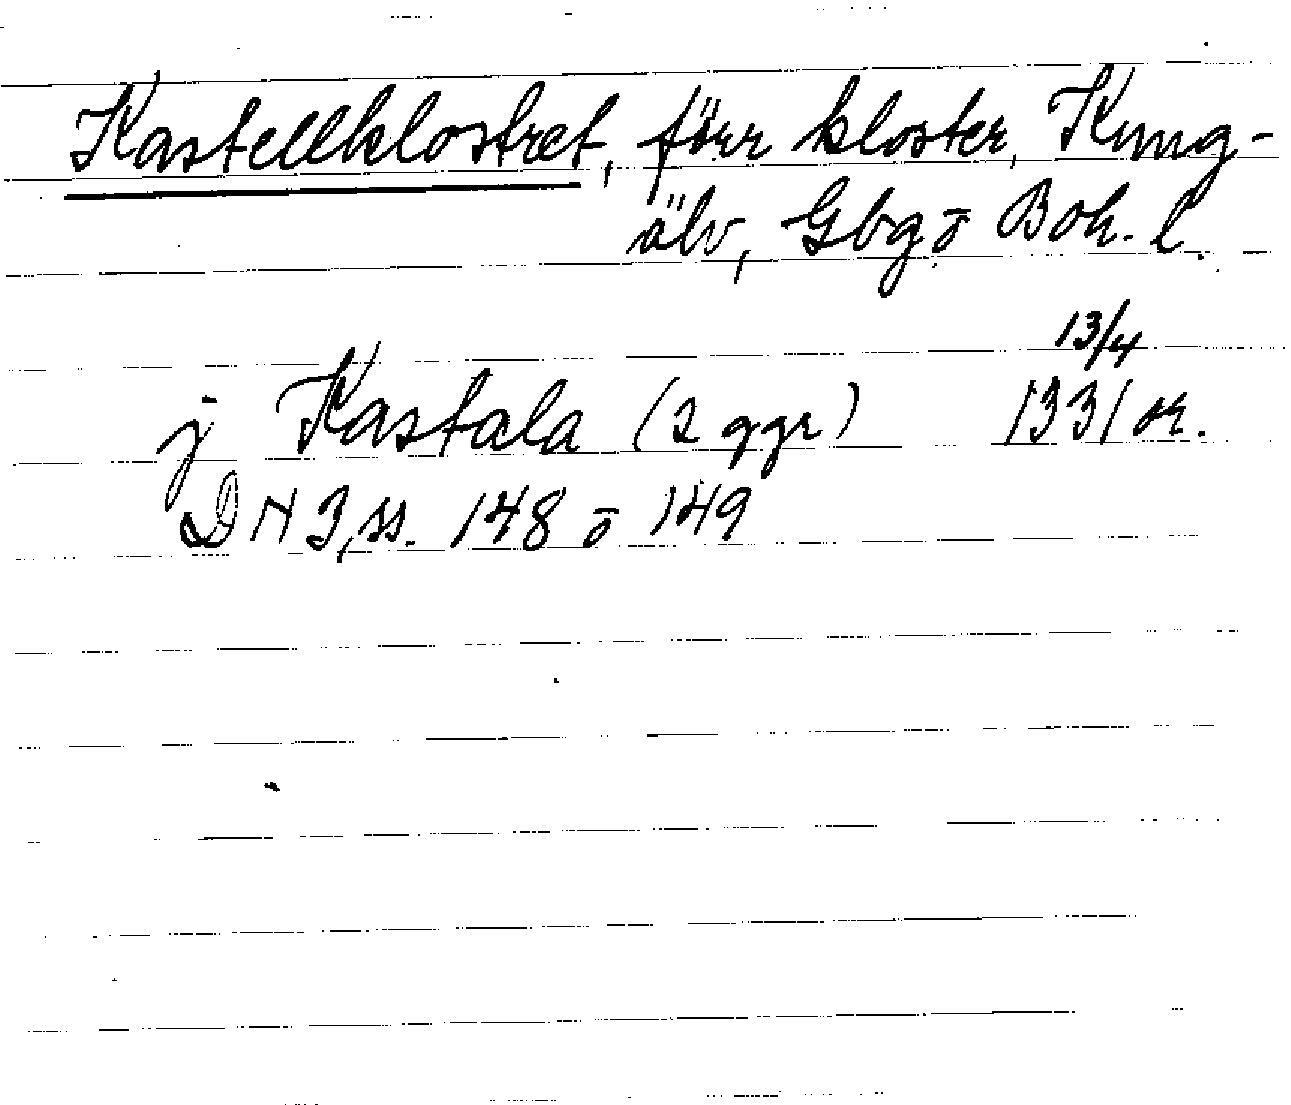 Kastellklostret, förr kloster, Kung-
älv, Gbg o Boh. l.
13/4
j Kastala (2 ggr) 1331 or.
DN 3, ss. 148 o 149